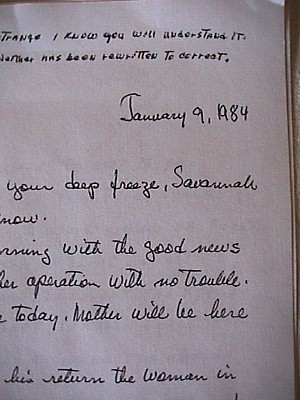 STRANGE I KNOW YOU WILL UNDERSTAND IT.
HAS BEEN REWRITTEN TO CORRECT.
January 9, 1984
your deep freeze, Savannah
now.
with the good news
her operation with no trouble.
today. Mother will be here
his return the woman in